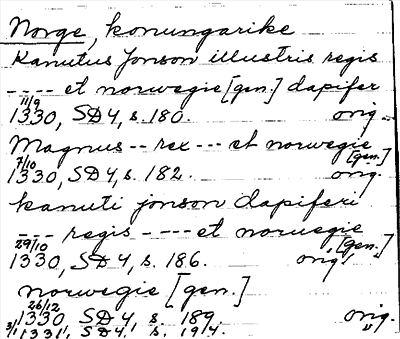 Norge, konungarike
Kanutus Jonson illustris regis
---- et norwegie [gen.] dapifer
11/9
1330, SD4, s. 180. orig.
Magnus -- rex --- et norwegie [gen.]
7/10
1330, SD4, s. 182. orig.
kanuti jonson dapiferi
--- regis - --- et norwegie [gen.]
29/10
1330, SD4, s. 186. orig. "
norwegie [gen.]
26/12
1330 SD4, s. 189. orig.
3/1 1331, SD4, s. 194. "